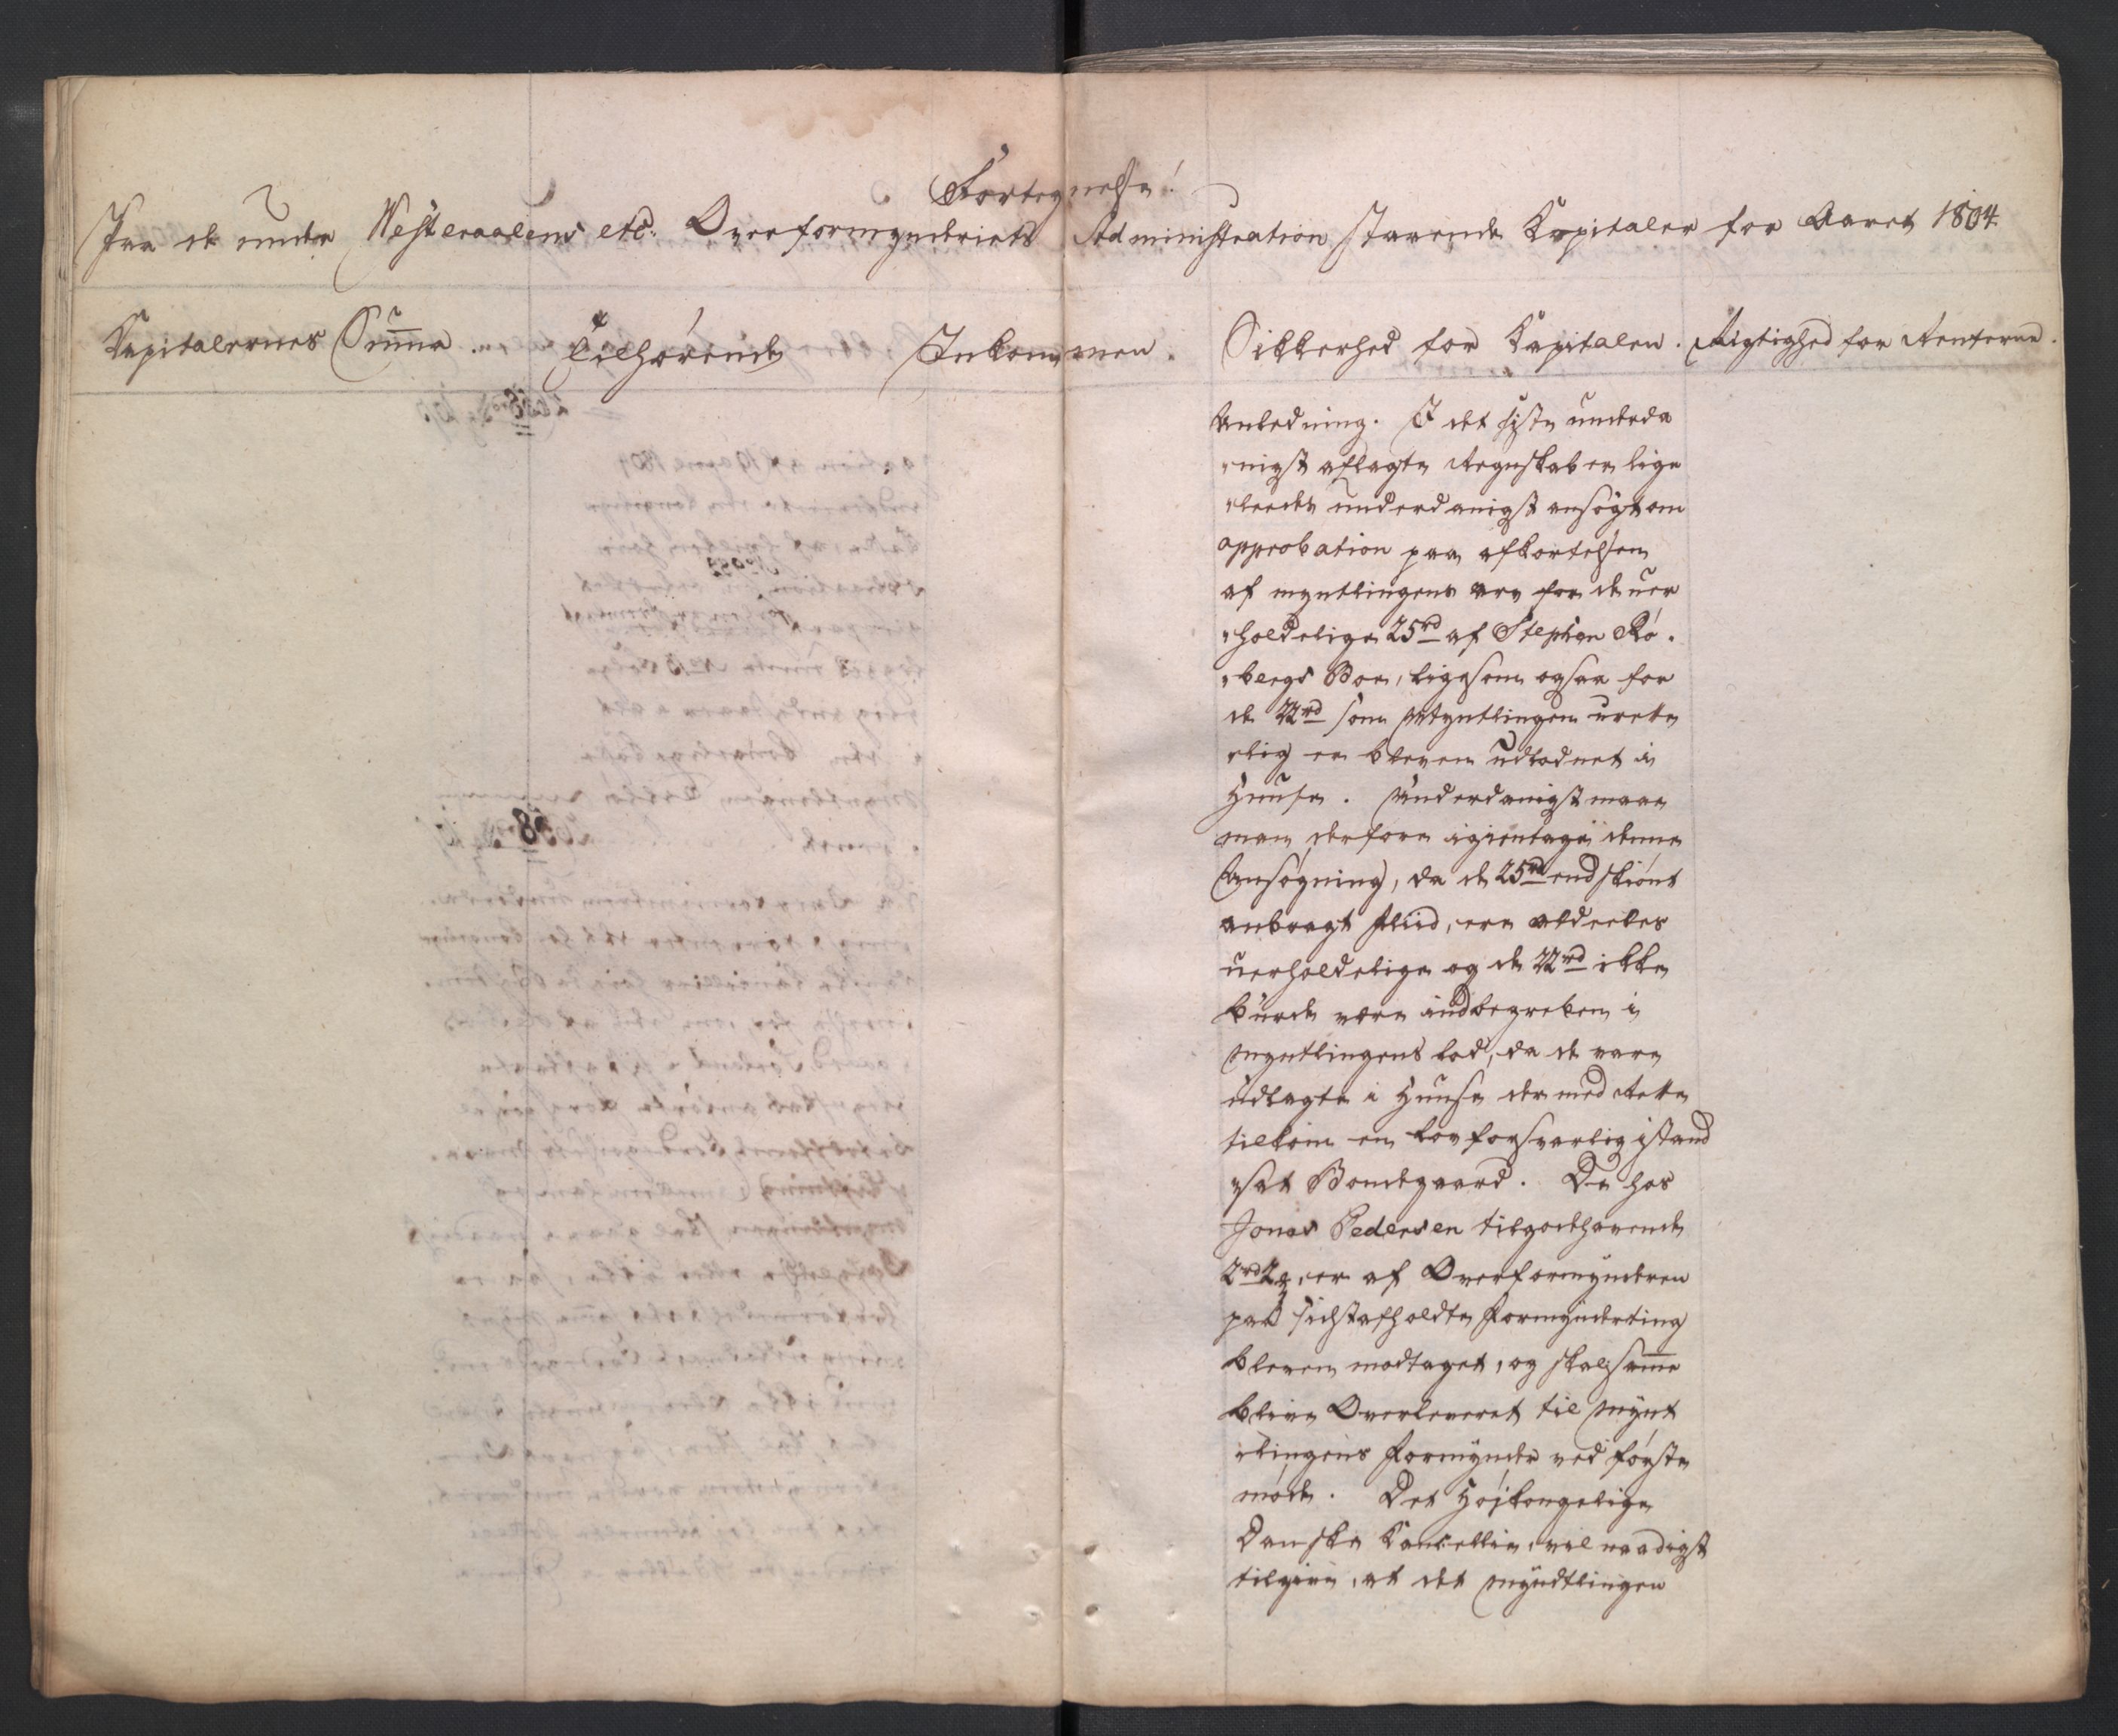 Fortegnelse!
Paa de under Westeraalens etc. Overformynderiets Administration staaende Kapitaler for Aaret 1804
Kapitalernes Suma.
Tilhørende
Inkommen.
Sikkerhed for Kapitalen.
Rigtighed for Renterne.
Anledning. I det siste underda
nigst aflagte Regnskab er lige
leedes underdanigst ansøgt om
approbation paa afkortelsen
af myntlingens arv for de uer
holdelige 25rd af Stephen Rø.
bergs Boe, ligesom ogsaa for
de 22rd som Myntlingen urette
lig er bleven udlodnet i
Huuse. Underdanigst maae
man derfore igientage denne
Ansøgning, da de 25rd endskiønt
anbragt Fliid, ere aldeeles
uerholdelige og de 22rd ikke
burde være indbegreben i
myntlingens lod, da de vare
udlagte i Huuse der med Rette
tilkom en lovforsvarlig istand
sat Bondegaard. De hos
Jonas Pedersen tilgodehavende
2rd 2 ere af Overformynderen
paa sidstafholdte Formynderting
bleven modtaget, og skal same
blive Overleveret til mynt
lingens Formynder ved første
møde. Det Høikongelige
Danske Kancellie, vil naadigst
tilgive, at det myndtlingen